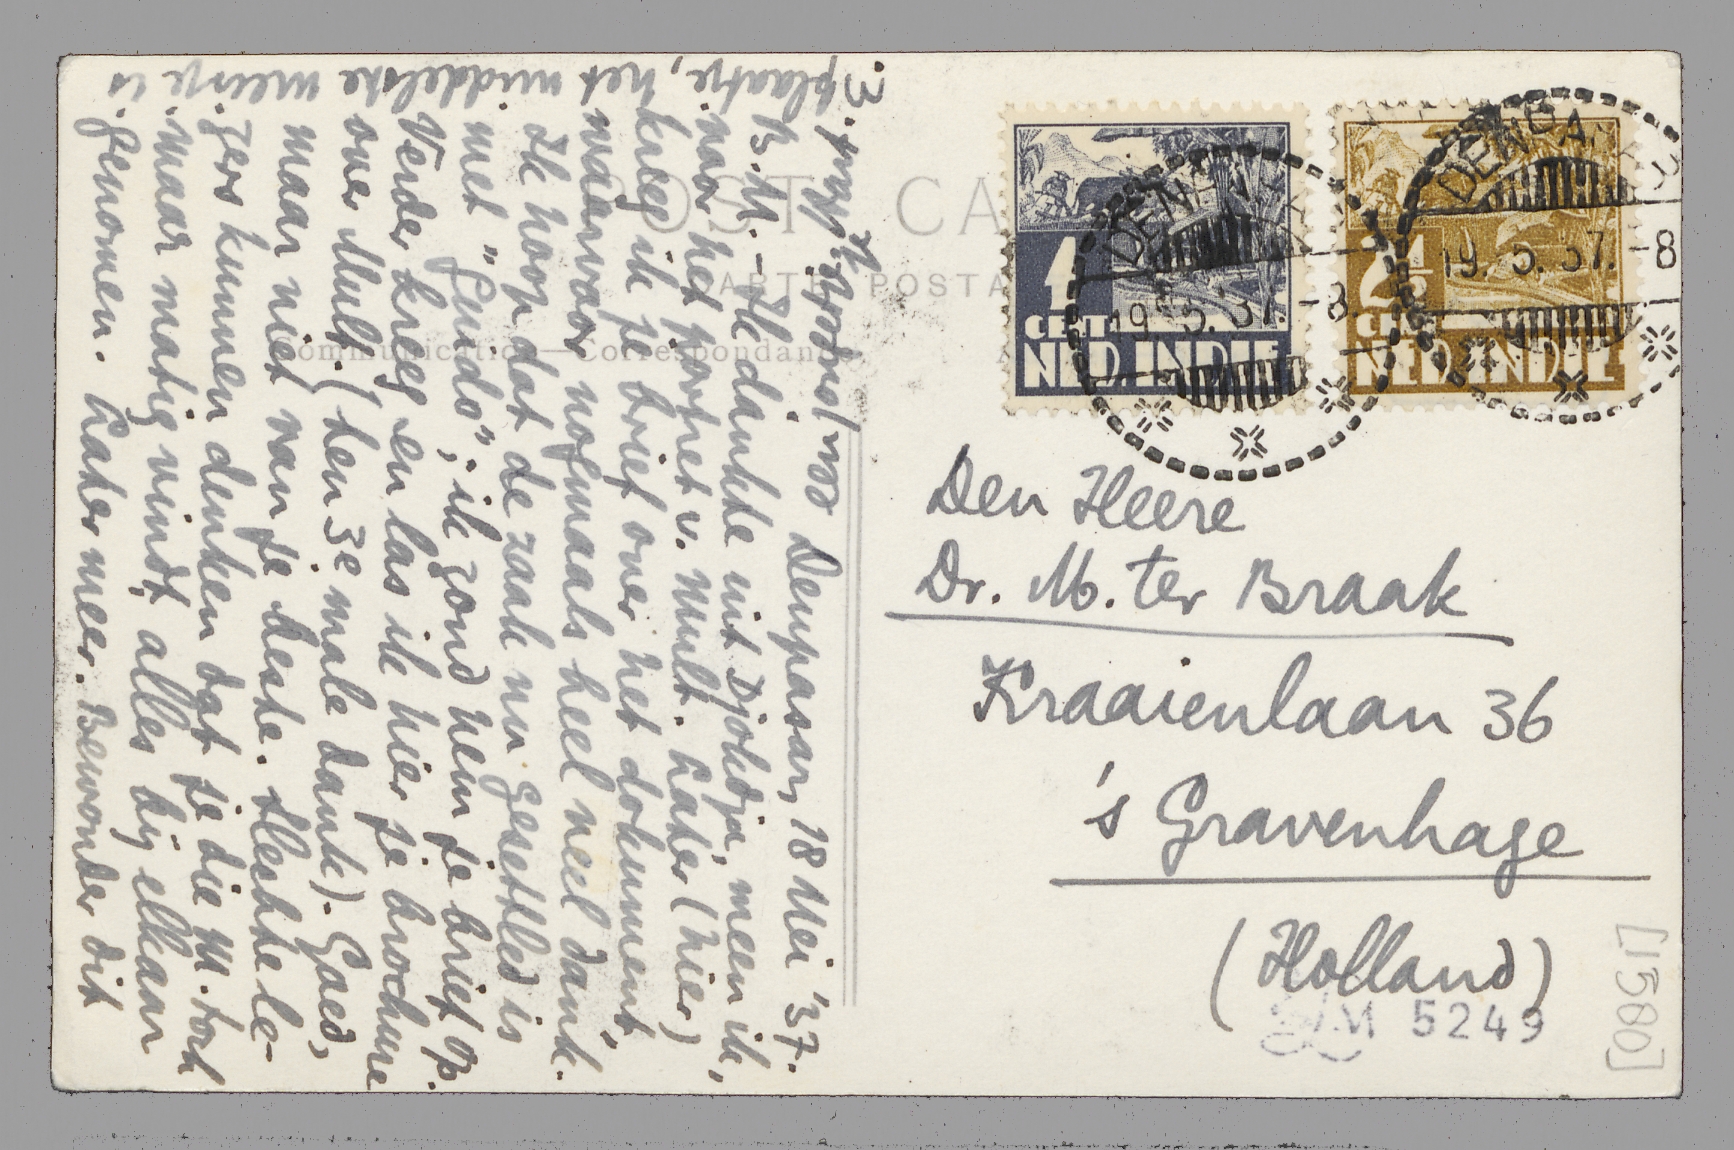 POST CARD
CARTE POSTALE
Communication—Correspondance
Denpasar, 18 Mei '37.
B.M. – Ik dankte uit Djokdja, meen ik,
voor het portret v. Mult. Later (hier)
kreeg ik je brief over het dokument,
waarvoor nogmaals heel veel dank.
Ik hoop dat de zaak nu gesettled is
met „Guido”; ik zond hem je brief op.
Verder kreeg en las ik hier je brochure
over Mult. (ten 3e male dank). Goed,
maar niet van je beste. Slechte le-
zers kunnen denken dat je die M. toch
maar matig vindt, alles bij elkaar
genomen. Later meer. Bewonder dit
plaatje, het middelste meisje is
1
CENT
NED. INDIE
2½
CENT
NED. INDIE
DENPASAR
19.5.37.-8
DENPASAR
19.5.37.-8
Den Heere
Dr. M. ter Braak
Kraaienlaan 36
's Gravenhage
(Holland)
LM 5249
[1580]